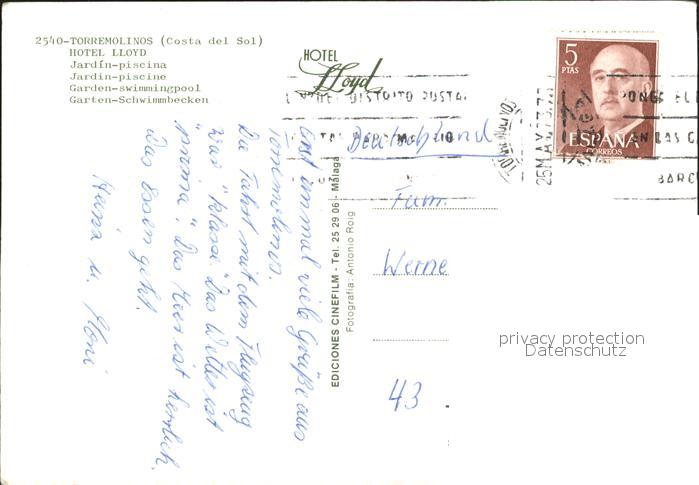 2540-TORREMOLINOS (Costa del Sol)
HOTEL LLOYD
Jardín-piscina
Jardin-piscine
Garden-swimmingpool
Garten-Schwimmbecken
HOTEL
Lloyd
5
PTAS
ESPAÑA
CORREOS
PONGA EL
EN LAS
BARC
25 MAY 73
Erst einmal viele Grüße aus
Torremolinos.
Die Fahrt mit dem Flugzeug
war "klasse". Das Wetter ist
"prima". Das Meer ist herrlich.
Das Essen geht.
Heinz u. Moni
EDICIONES CINEFILM - Tel. 25 29 06 - Málaga
Fotografía: Antonio Roig
Deutschland
Fam.
Werne
43
privacy protection
Datenschutz